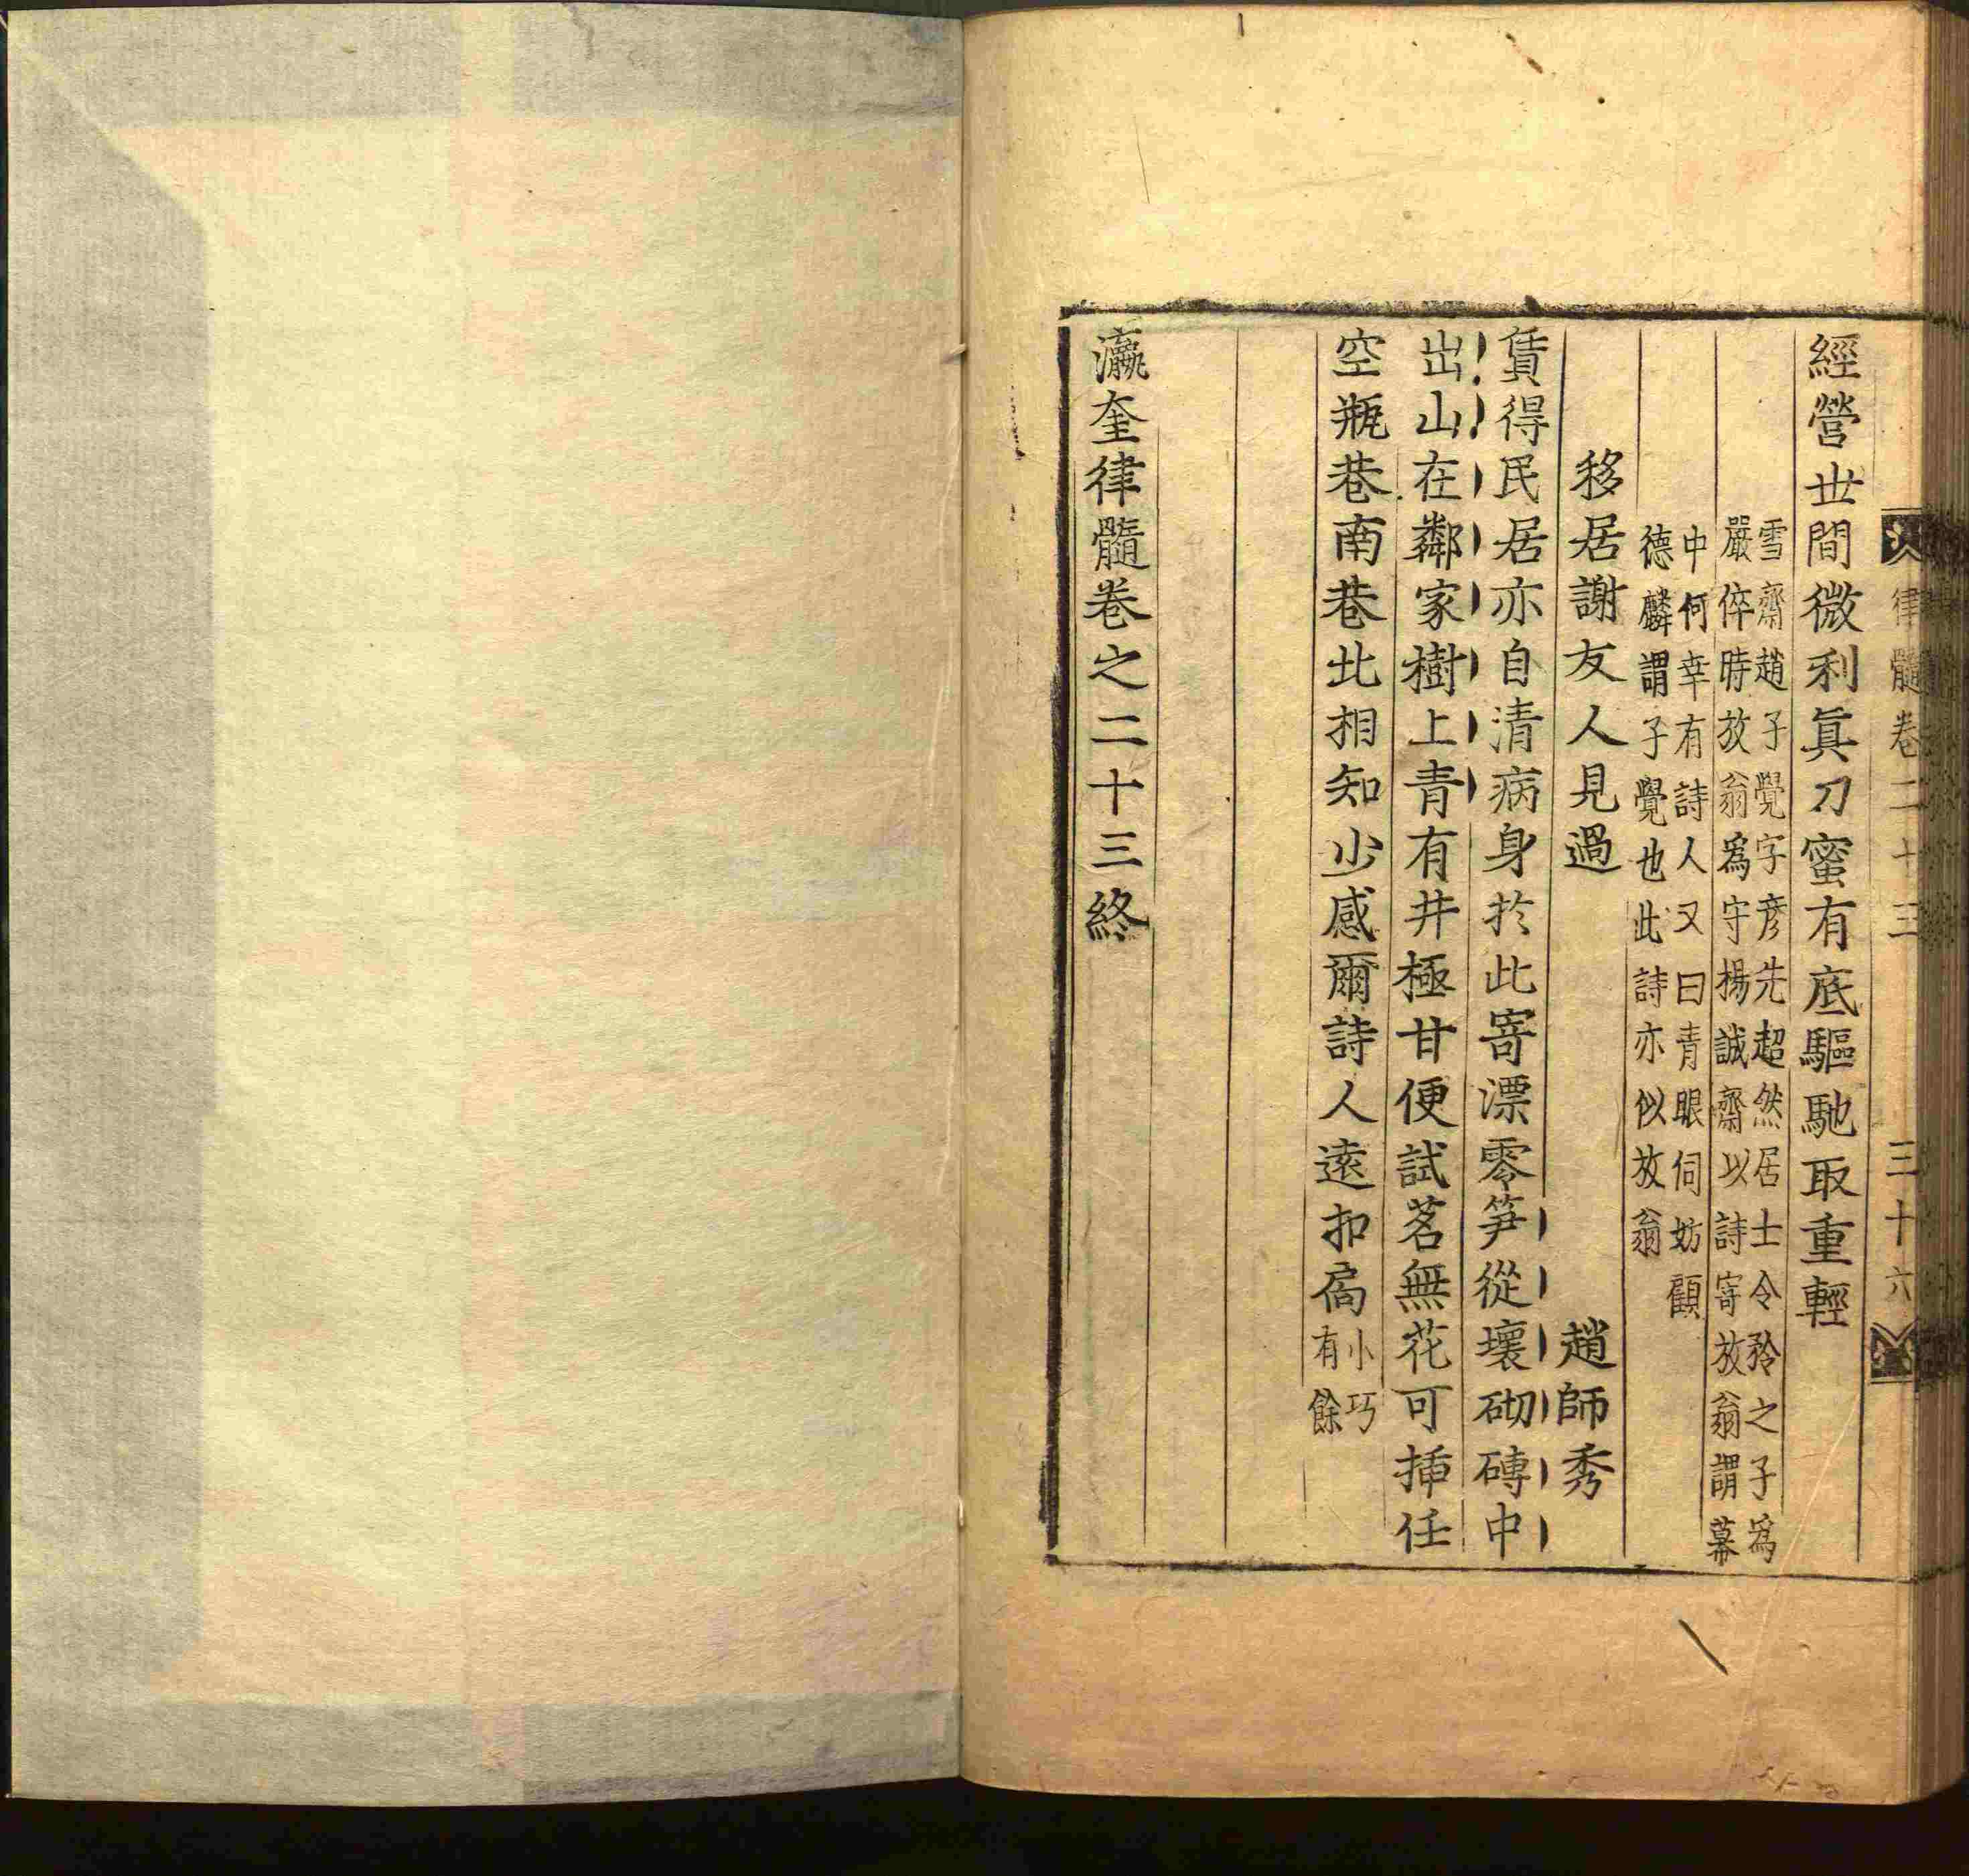 律髓卷二十三　三十六
經營世間微利眞刀蜜有底驅馳取重輕
雪齋趙子覺字彦先超然居士令矜之子爲
嚴倅時放翁爲守楊誠齋以詩寄放翁謂幕
中何幸有詩人又曰青眼伺妨顧
德麟謂子覺也此詩亦似放翁
移居謝友人見過　趙師秀
賃得民居亦自清病身於此寄漂零笋從壞砌磚中
出山在鄰家樹上青有井極甘便試茗無花可挿任
空瓶巷南巷北相知少感爾詩人遠扣扃小巧
有餘
瀛奎律髓卷之二十三終